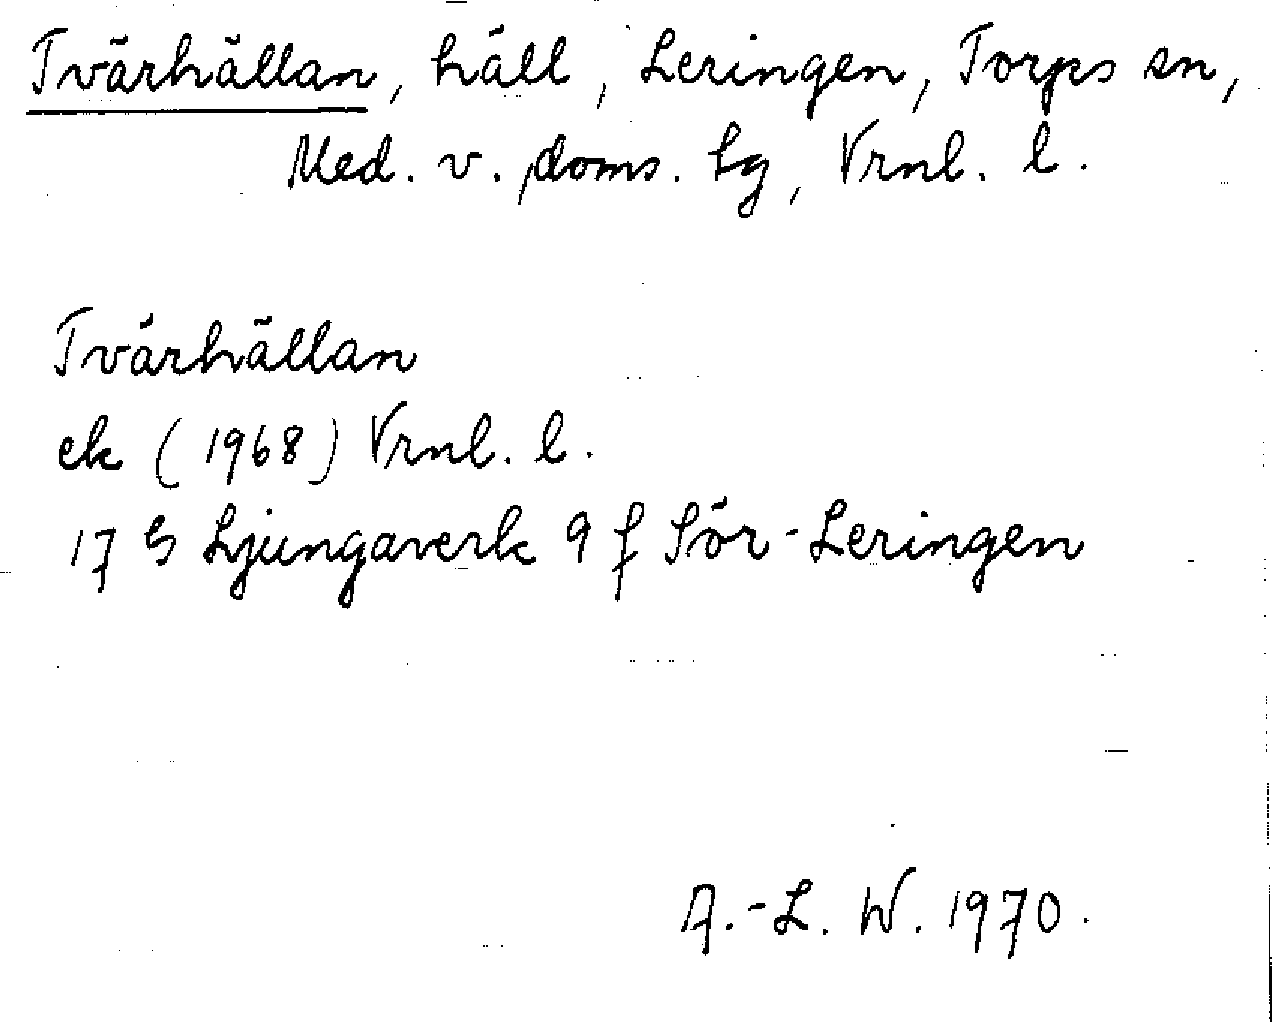 Tvärhällan, häll, Leringen, Torps sn,
Med. v. doms. tg, Vrnl. l.
Tvärhällan
ek (1968) Vrnl. l.
17 G Ljungaverk 9 f Sör-Leringen
A.-L. W. 1970.